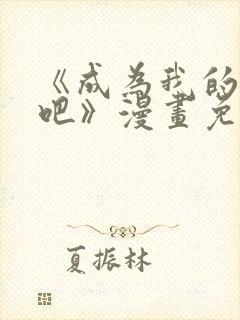 《成為我的
吧》漫畫免
夏振林